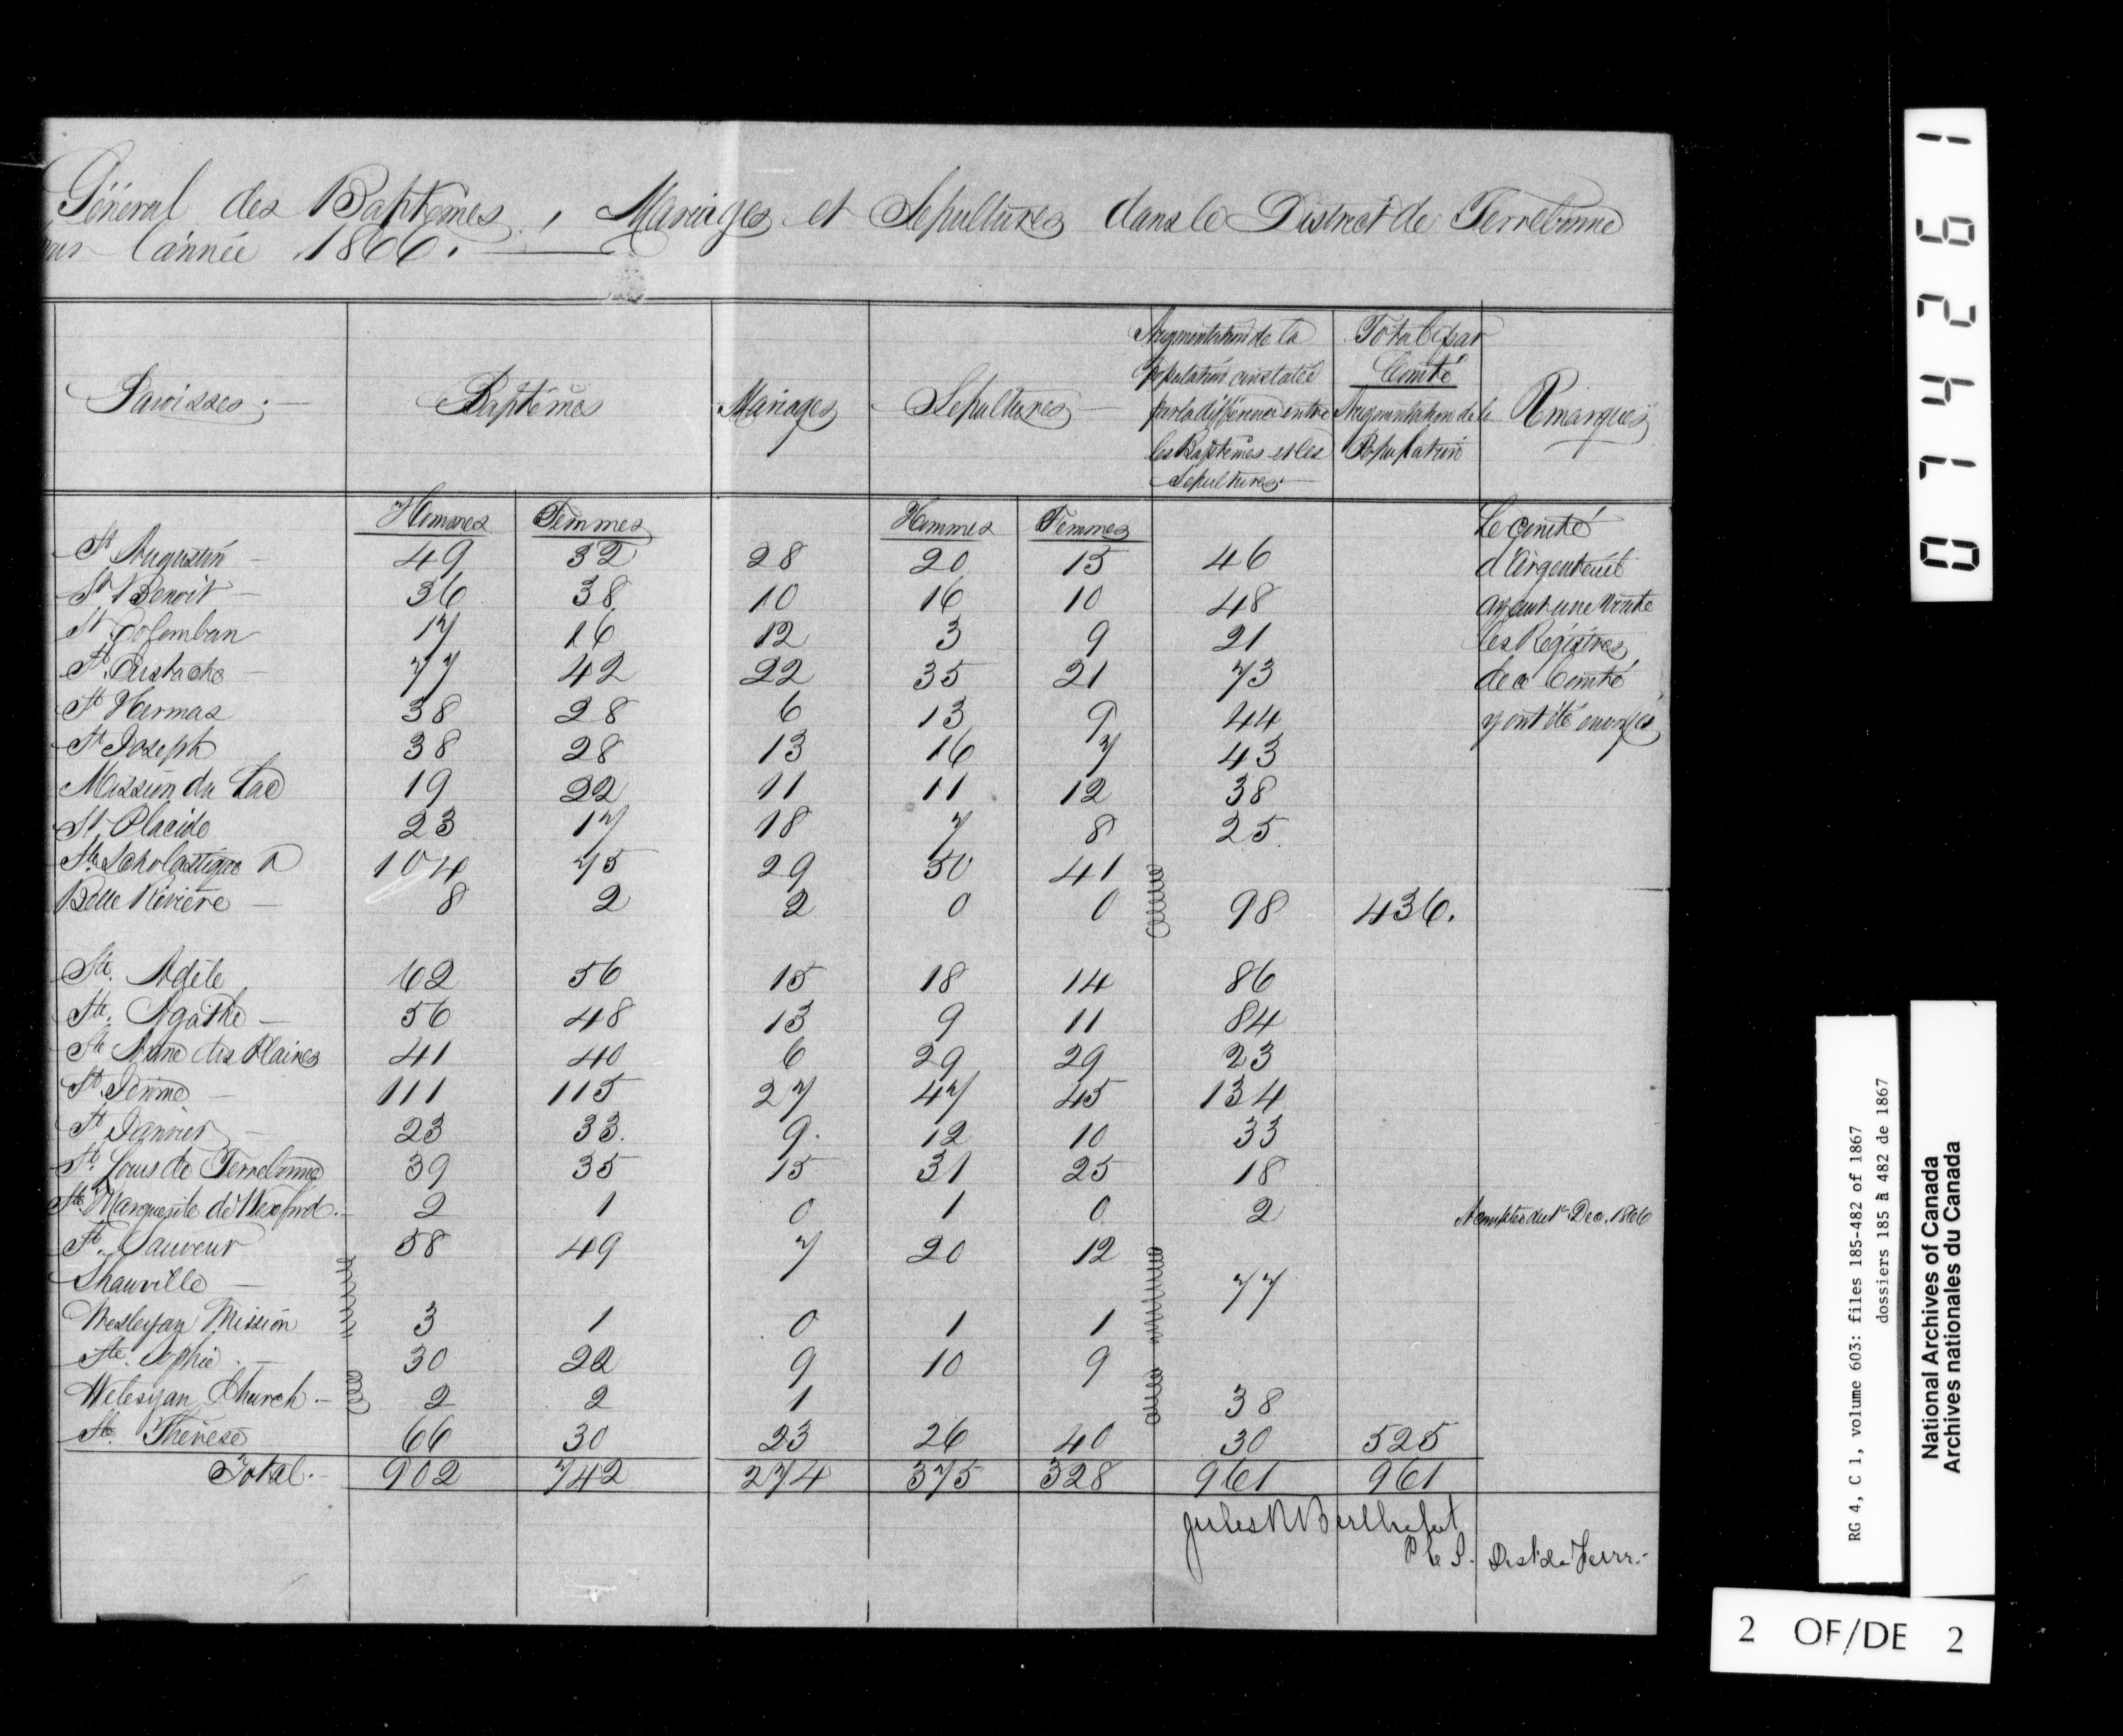 Général des Baptemes, Mariages et Sepultures dans le District de Terrebonne
l'année 1866.
Paroisses. Baptêmes Mariages Sepultures Augmentation de la population constatée par la différence entre les Baptêmes et les Sepultures Total par Comté Augmentation de la Population Remarques
Hommes Femmes Hommes Femmes Le Comté
St Augustin 49 32 28 20 15 46 d'Argenteuil
St Benoit 36 38 10 16 10 48 ayant une
St Colomban 17 16 12 3 9 21 les Régistres
St Eustache 77 42 22 35 21 73 de ce Comté
St Hermas 38 28 6 13 9 44 y ont été
St Joseph 38 28 13 16 7 43
Mission du Lac 19 22 11 11 12 38
St Placide 23 17 18 7 8 25
Ste Scholastique 104 75 29 50 41
Belle Rivière 8 2 2 0 0 98 436.
Ste. Adèle 62 56 15 18 14 86
Ste. Agathe 56 48 13 9 11 84
Ste Anne des Plaines 41 40 6 29 29 23
St Jérôme 111 115 27 47 45 134
St Janvier 23 33. 9. 12 10 33
St. Louis de Terrebonne 39 35 15 31 25 18
Ste Marguerite de Wexford. 2 1 0 1 0 2 A compter du 1er Dec. 1866
St. Sauveur 58 49 7 20 12
Shawville 77
Wesleyan Mission 3 1 0 1 1
Ste. Sophie 30 22 9 10 9
Welesyan Church. 2 2 1 38
Ste. Thérèse 66 30 23 26 40 30 525
Total. 902 742 274 375 328 961 961
Dist de Terr.
0 7 4 2 6 1
RG 4, C 1, volume 603: files 185-482 of 1867
dossiers 185 à 482 de 1867
National Archives of Canada
Archives nationales du Canada
2 OF/DE 2